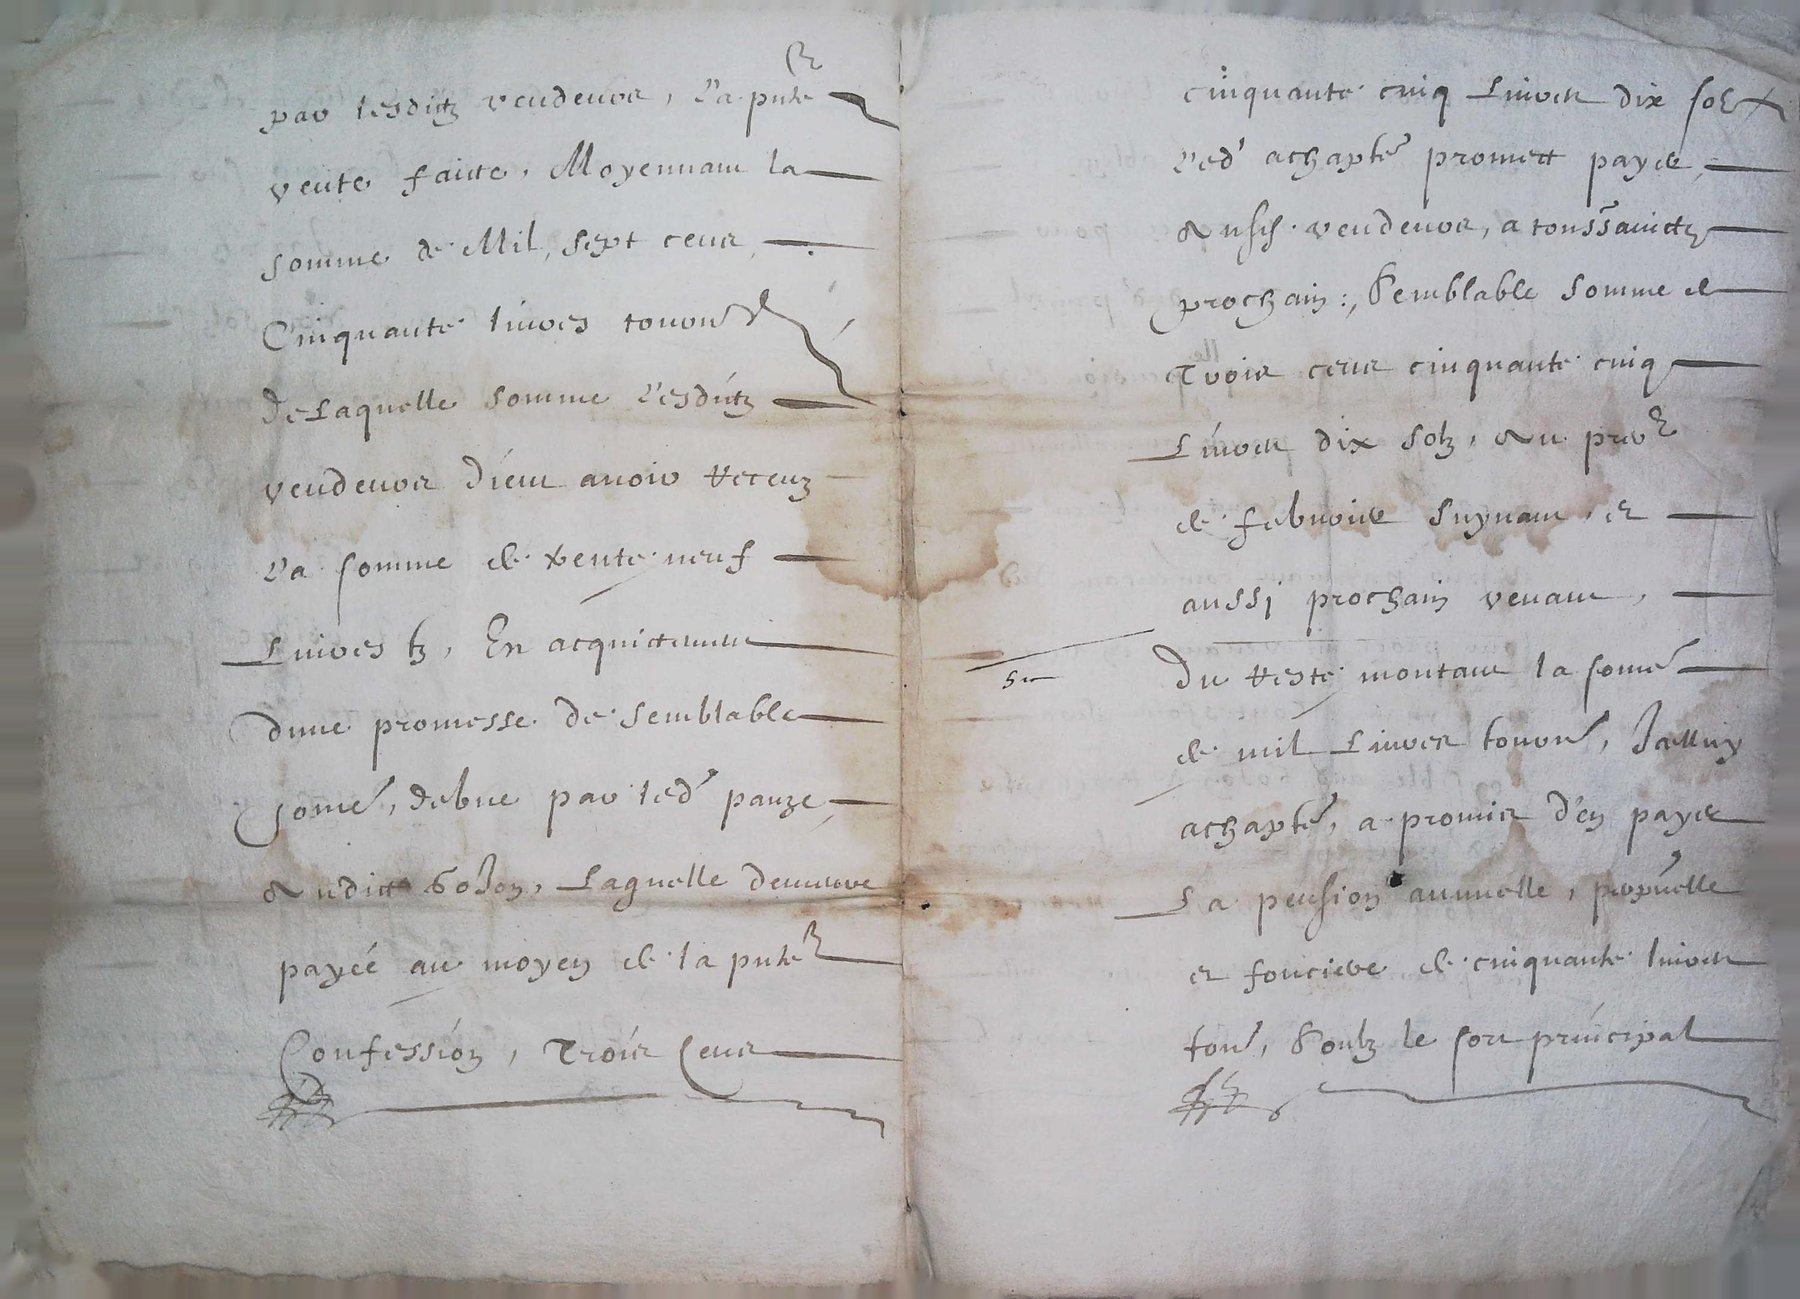 par lesditz vendeurs, La pnte
vente faitte, Moyennant la
somme de Mil, sept cens,
Cinquante livres tournois
De Laquelle somme Lesditz
vendeurs dient avoir Receuz
La somme de trente neuf
Livres tz, En acquittement
Dune promesse de semblable
some, debue par led pauze,
Audict Solon, Laquelle demeure
payéé au moyen de la pnte
Confession, Trois Cens
cinquante cinq Livres dix solz
Led' achapter promett payer,
Ausd. vendeurs, a toussainctz
prochain:, Semblable somme de
Trois cens cinquante cinq
Livres dix solz, Au pre
de febvrier suyvant, et
aussi prochain venant,
Du Reste montant la some
de mil Livres tour, Jcelluy
achapter, a promis d'en payer
La pension annuelle, perpuelle
et fonciere de cinquante livres
tour, Soulz le sort principal